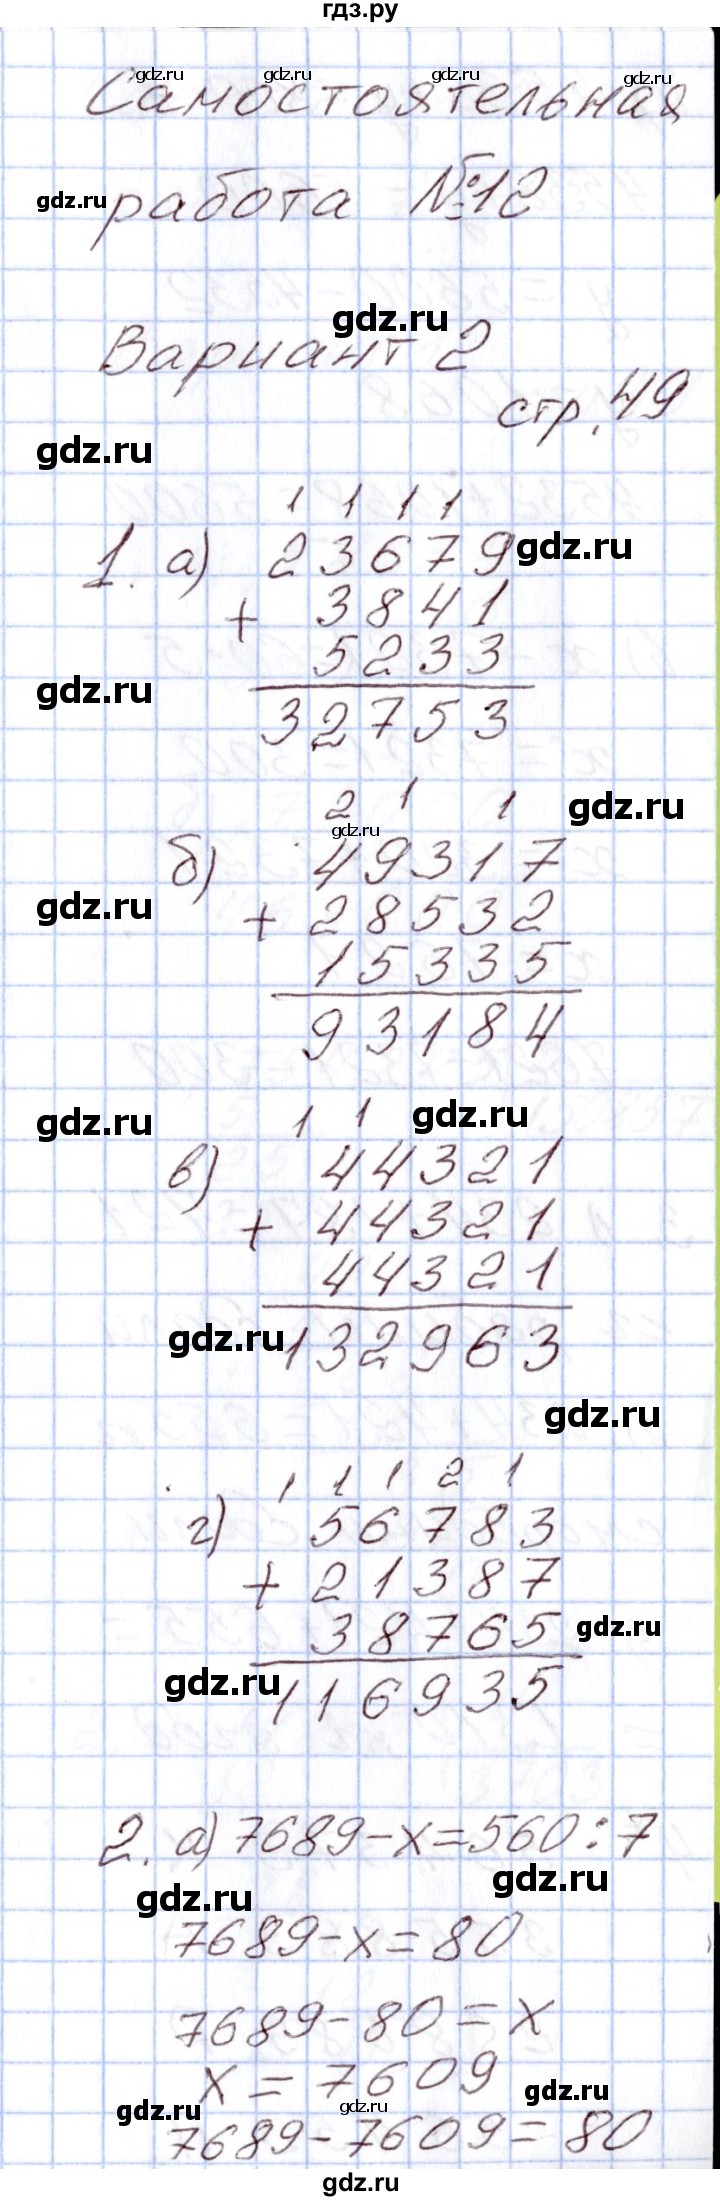 гдз.ру
gdz.ru gdz.ru gdz.ru gdz.ru
Самостоятельная
gdz.ru
работа №12
gdz.ru
Вариант 2
стр. 49
gdz.ru
1 1 1 1
1. а) 23679
gdz.ru
+ 3841
5233
gdz.ru
32753
2 1 1
gdz.ru
gdz.ru
б) 49317
+ 28532
gdz.ru
15335
93184
1 1
gdz.ru
gdz.ru
в) 44321
+ 44321
44321
gdz.ru
132963
gdz.ru
1 1 1 2 1
г) 56783
+ 21387
38765
gdz.ru
gdz.ru
116935
2. а) 7689-x=560:7
gdz.ru
gdz.ru
7689-x=80
7689-80=x
x=7609
gdz.ru
gdz.ru
gdz.ru
7689-7609=80
gdz.ru